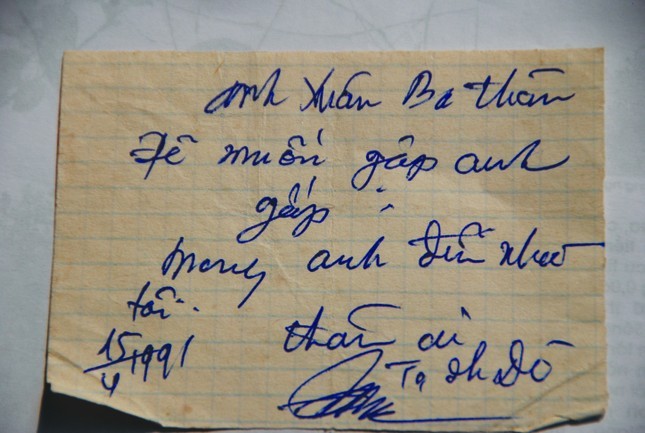 Anh Xuân Ba thân
Đê muốn gặp anh
gấp :
mong anh đến nhà
tôi..
thân ái
15/4 1991
Tạ Đình Đề